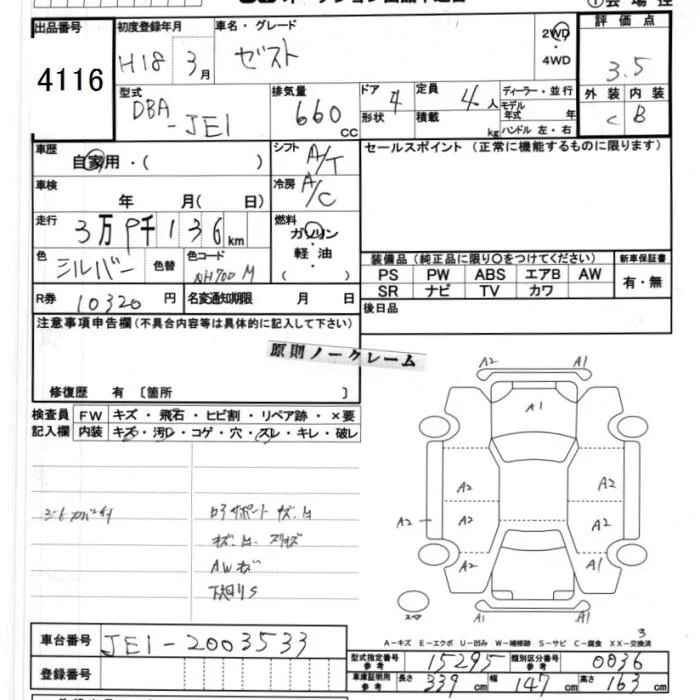 出品番号 初度登録年月 車名・グレード 2WD 評価点
4116 H18 3月 ゼスト ・ 3.5
4WD
型式 排気量 ドア 定員 ディーラー・並行 外装 内装
DBA-JE1 660cc 4 4人 モデル年式 年 C B
形状 積載 kg ハンドル 左・右
車歴 自家用・( ) シフト A/T セールスポイント (正常に機能するものに限ります)
車検 年 月( 日) 冷房 A/C
走行 3万9千136km 燃料 ガソリン
軽油
( )
色 シルバー 色替 色コード NH700M 装備品(純正品に限り○をつけてください) 新車保証書
PS PW ABS エアB AW 有・無
SR ナビ TV カワ
R券 10320円 名変通知期限 月 日 後日品
注意事項申告欄(不具合内容等は具体的に記入して下さい)
原則ノークレーム
修復歴 有 〔箇所 〕
検査員 FW キズ・飛石・ヒビ割・リペア跡・×要
記入欄 内装 キズ・汚レ・コゲ・穴・スレ・キレ・破レ
キズ
AWキズ
下廻りS
A2 A1
A1
A2 A2
A2 A2 A2
A2 A1
スペア A1 A1
A-キズ E-エクボ U-凹み W-補修跡 S-サビ C-腐食 XX-交換済
3
車台番号 JE1-2003533
型式指定番号 参考 15295 類別区分番号 参考 0036
登録番号 車庫証明用 参考 長さ 339cm 幅 147cm 高さ 163cm